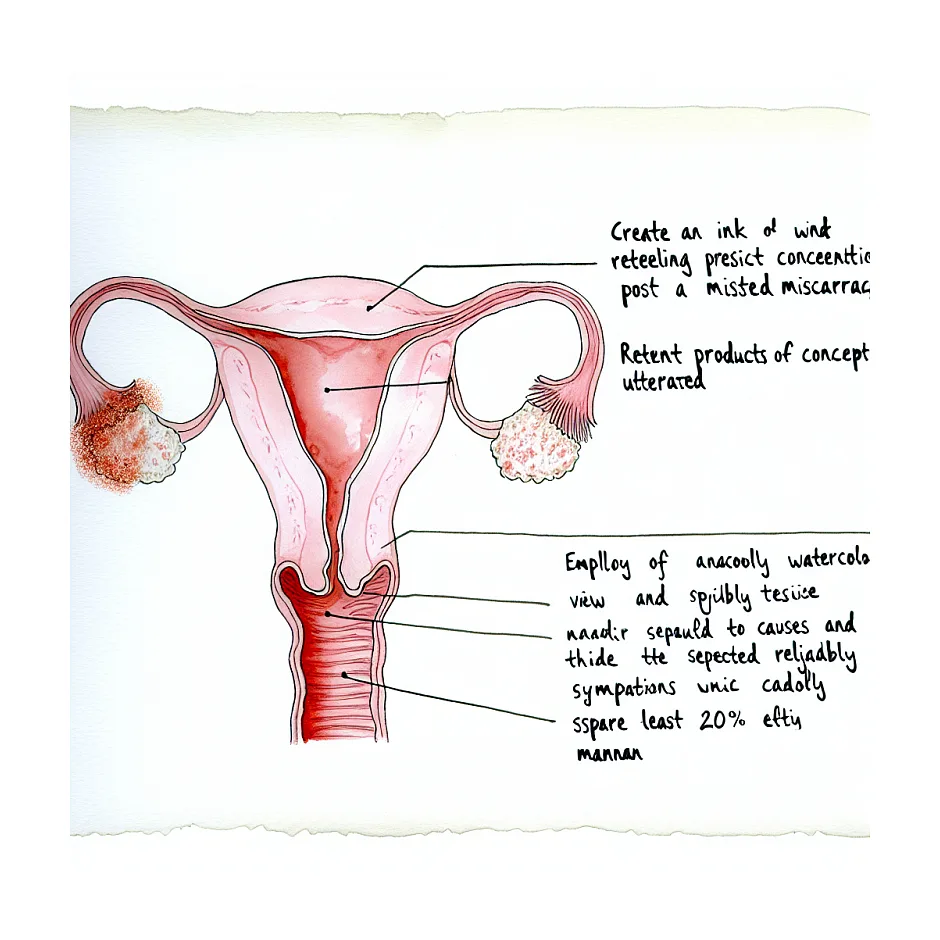 Create an ink of wind
reteeling presict conceenttic
post a misted miscarrac
Retent products of concept
utterated
Emplloy of anacoolly watercolo
view and spjilbly tesiice
naadir sepauld to causes and
thide tte sepected reljadbly
sympations unic cadolly
sspare least 20% eftiy
mannan